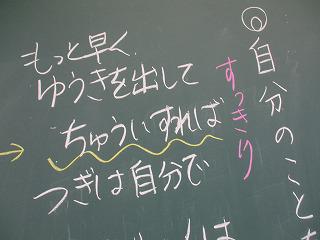 ◎自分のこと
すっきり
もっと早く
ゆうきを出して
ちゅういすれば
つぎは自分で